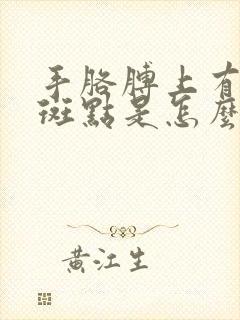 手胳膊上有
斑點是怎麼
黃江生